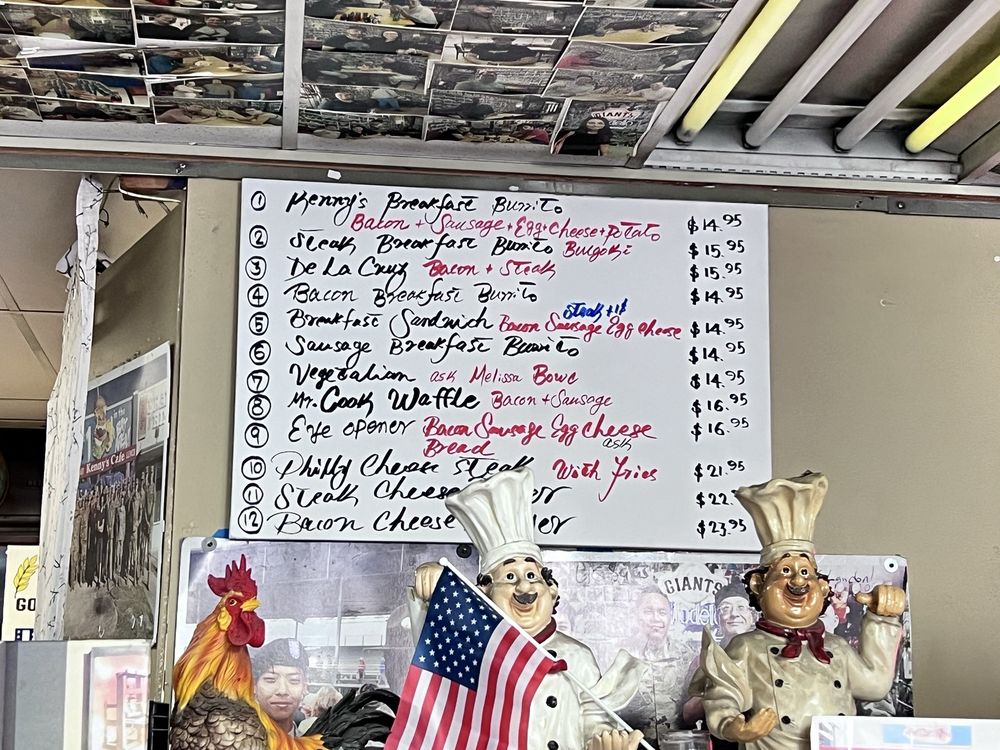 ① Kenny's Breakfast Burrito
Bacon + Sausage + Egg + Cheese + Potato $14.95
② Steak Breakfast Burrito Bulgoki $15.95
③ De La Cruz Bacon + Steak $15.95
④ Bacon Breakfast Burrito $14.95
Steak + 1$
⑤ Breakfast Sandwich Bacon Sausage Egg Cheese $14.95
⑥ Sausage Breakfast Burrito $14.95
⑦ Vegetalian ask Melissa Bowe $14.95
⑧ Mr. Cook Waffle Bacon + Sausage $16.95
⑨ Eye opener Bacon Sausage Egg Cheese $16.95
Bread ask
⑩ Philly Cheese Steak With Fries $21.95
⑪ Steak Cheese er $22.
⑫ Bacon Cheese er $23.95
GIANTS
Kenny's Cafe
GO
GIANTS